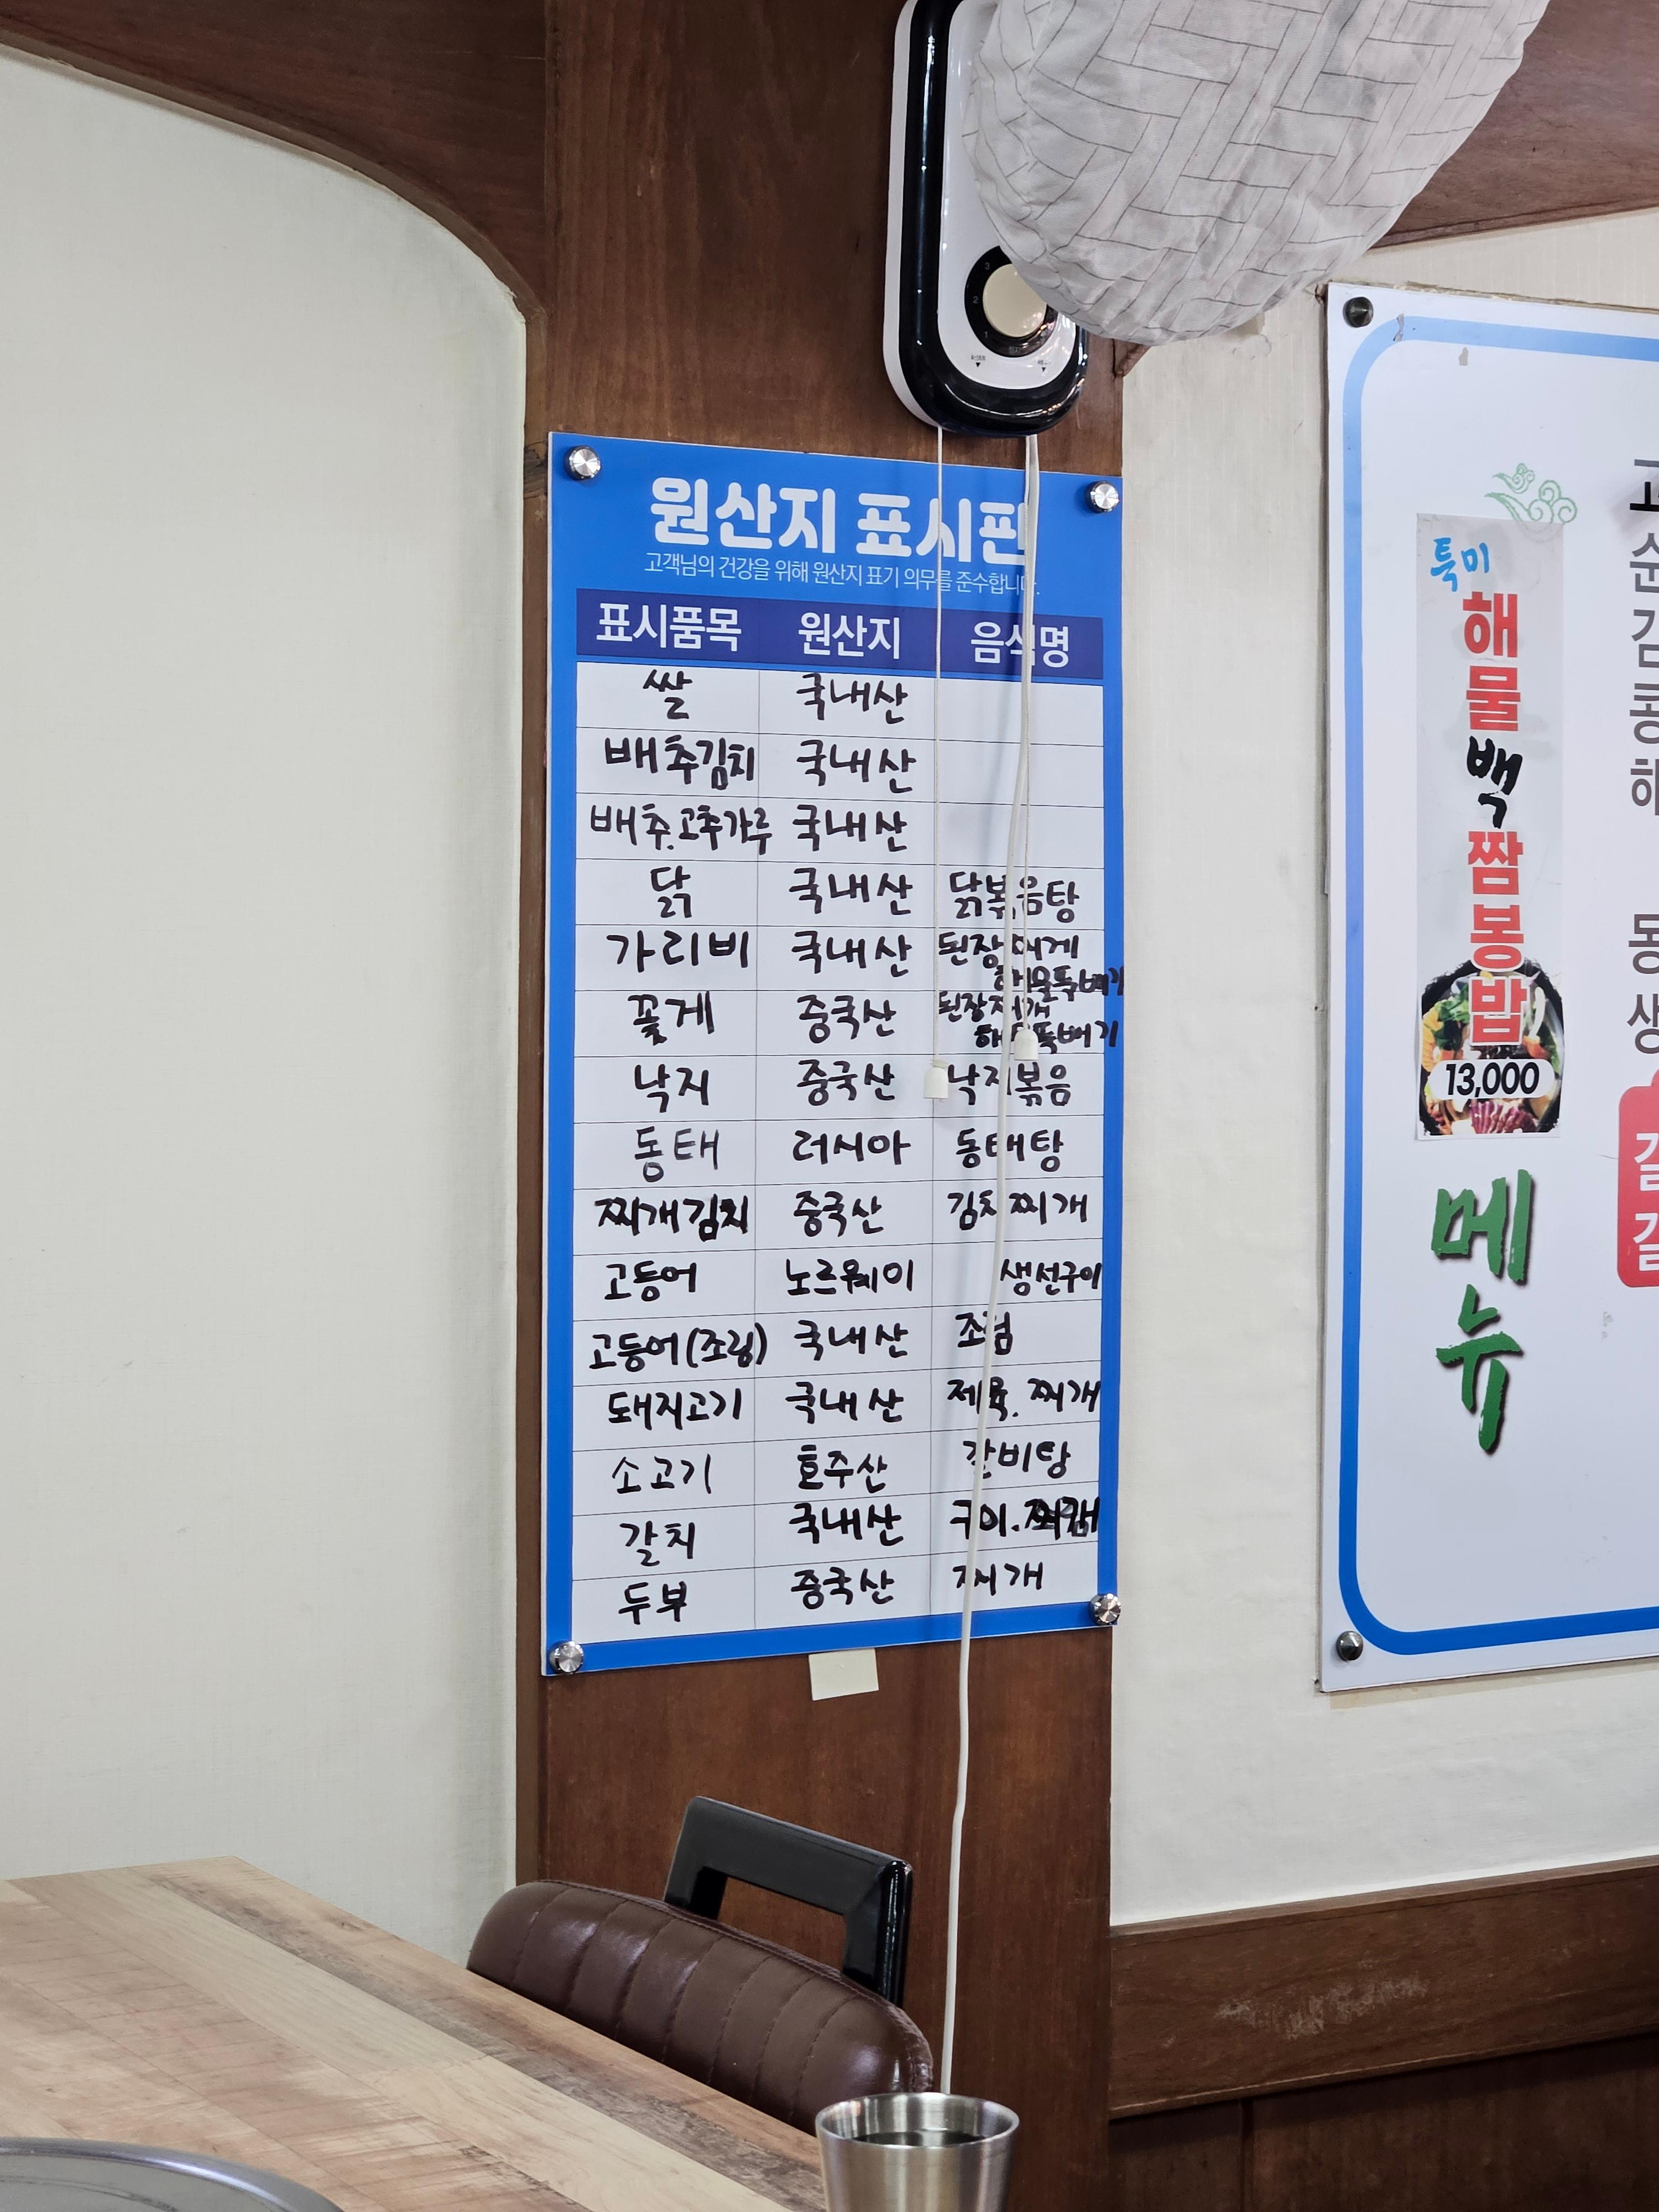 원산지 표시판
고객님의 건강을 위해 원산지 표기 의무를 준수합니다.
표시품목 원산지 음식명
쌀 국내산
배추김치 국내산
배추.고추가루 국내산
닭 국내산 닭볶음탕
가리비 국내산 된장찌게
해물뚝배기
꽃게 중국산 된장찌개
해물뚝배기
낙지 중국산 낙지볶음
동태 러시아 동태탕
찌개김치 중국산 김치찌개
고등어 노르웨이 생선구이
고등어(조림) 국내산 조림
돼지고기 국내산 제육.찌개
소고기 호주산 갈비탕
갈치 국내산 구이.
두부 중국산 찌개
특미
해물백짬뽕밥
13,000
메뉴
동
생